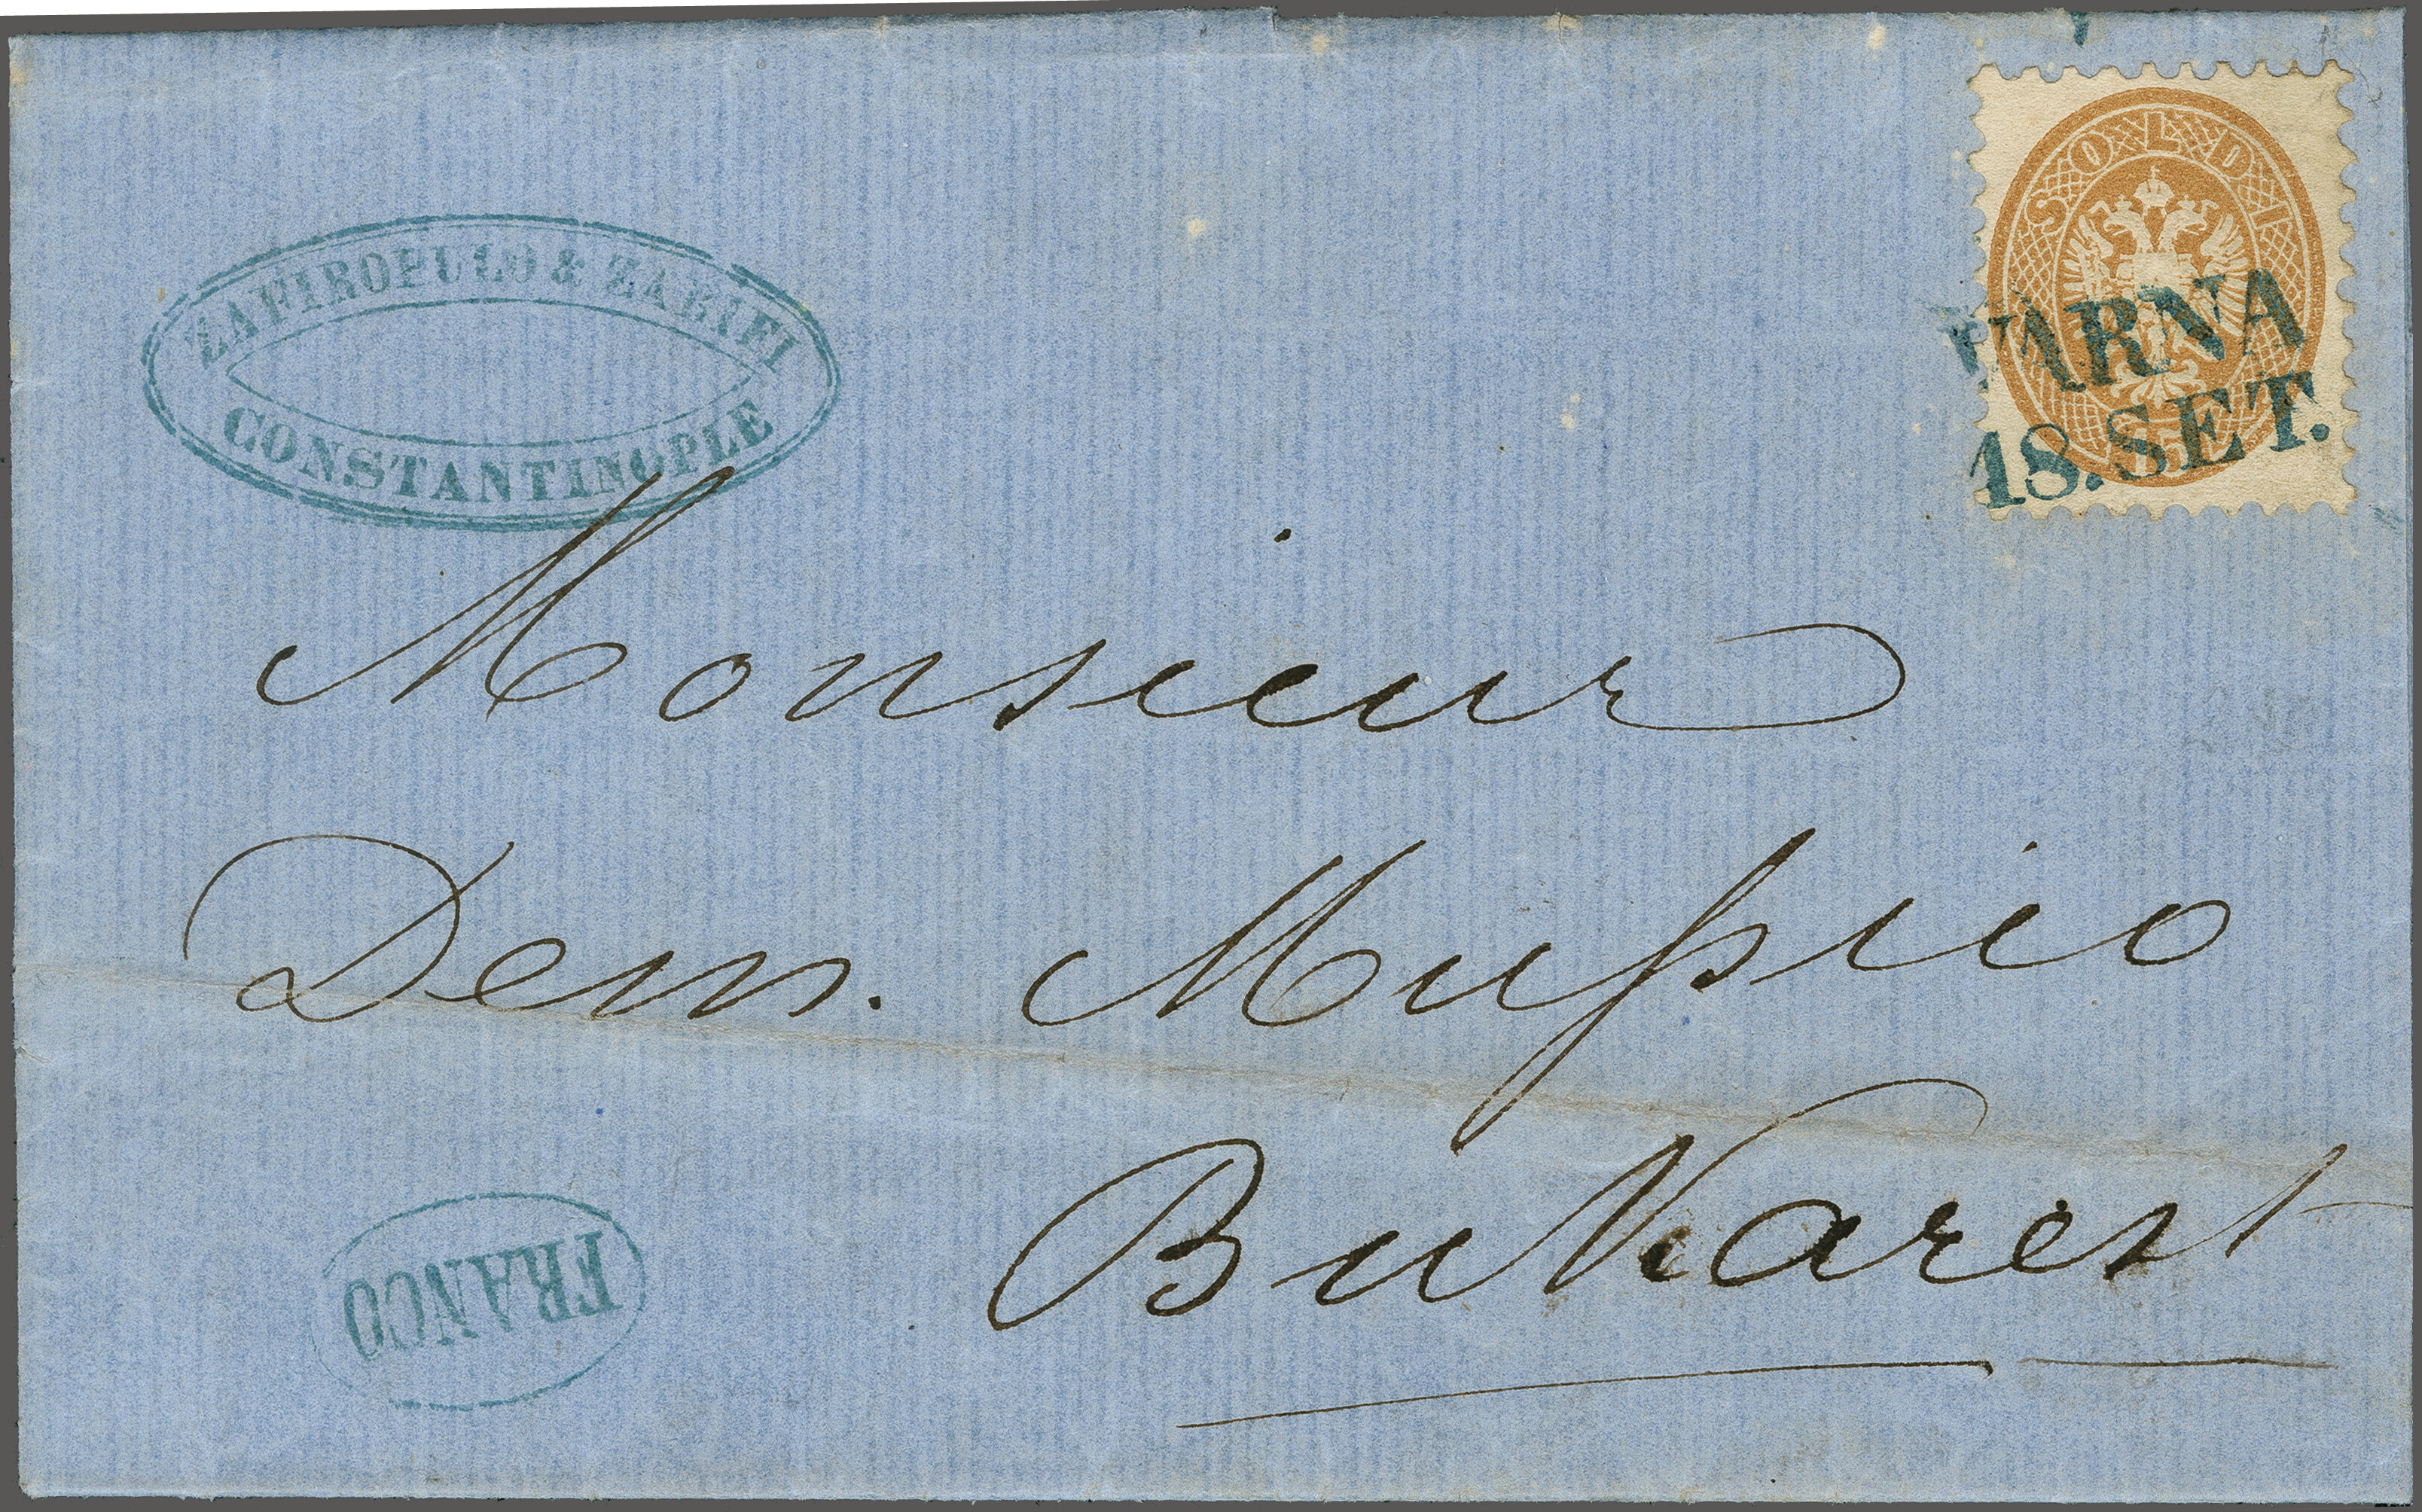 ZAFIROPULO & ZARIFI
CONSTANTINOPLE
SOLDI
15
VARNA
18. SET.
Monsieur
Dem. Mussico
Bukarest
FRANCO